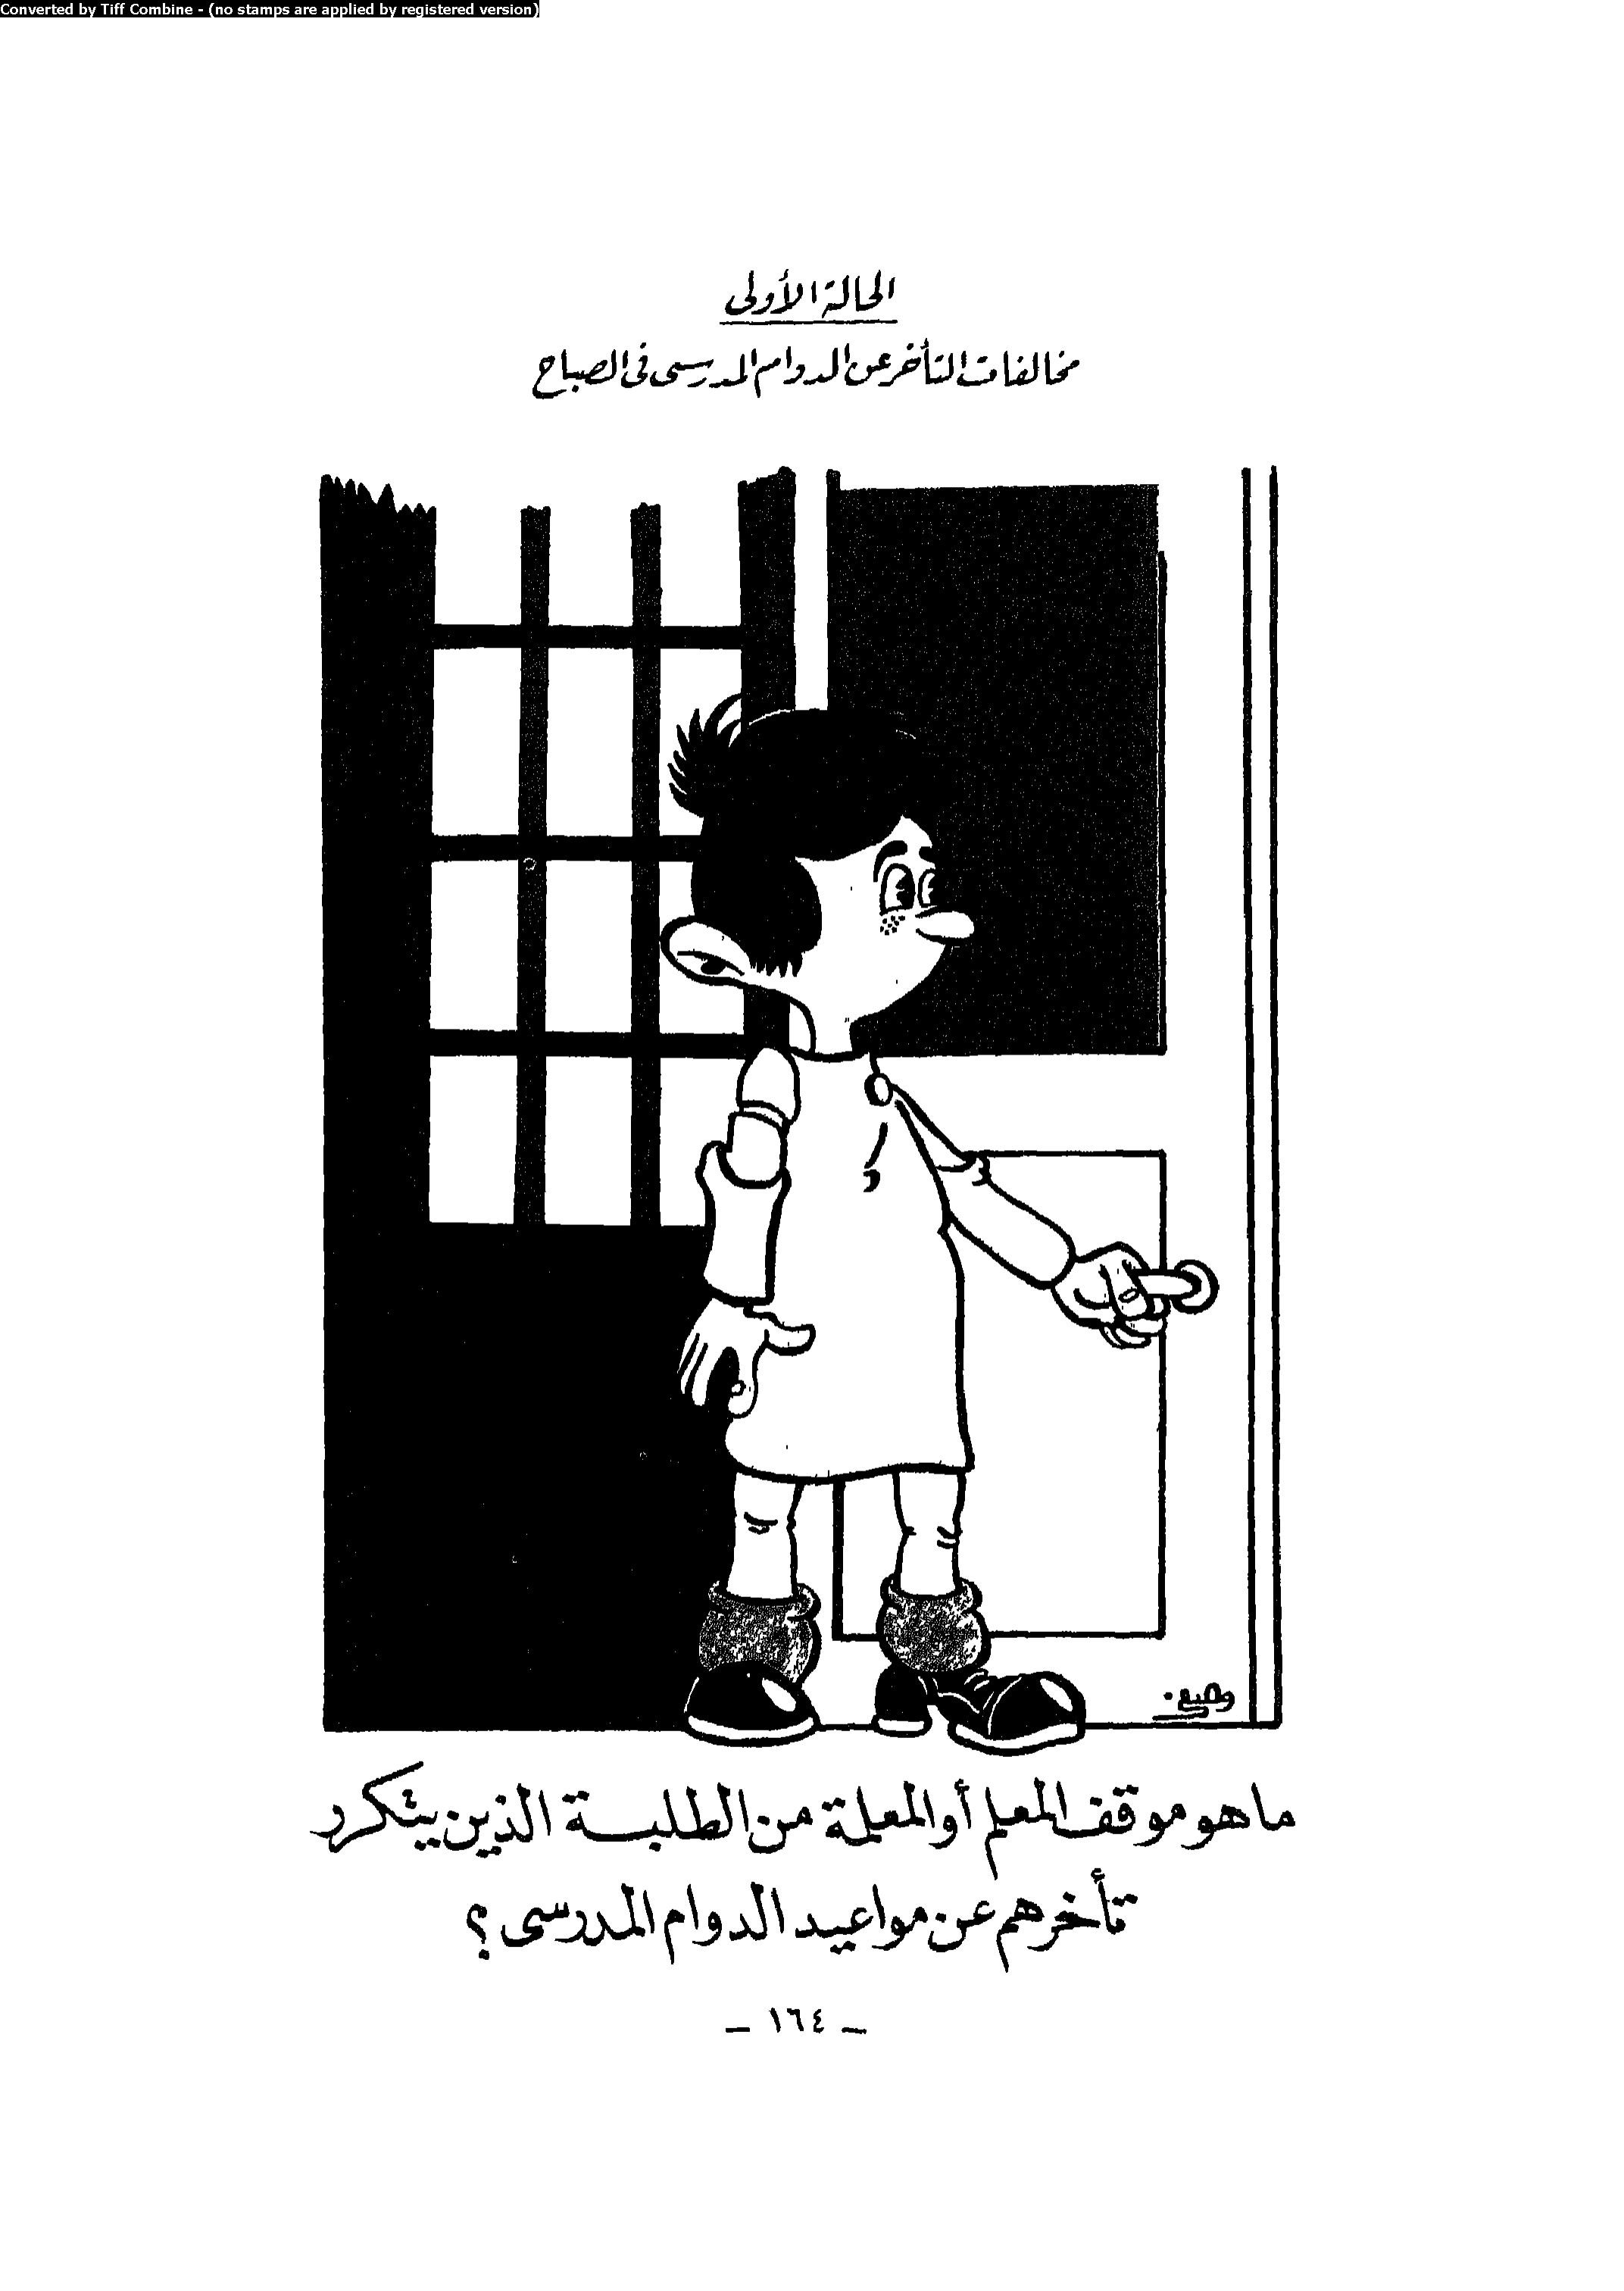 Converted by Tiff Combine - (no stamps are applied by registered version)
الحالة الأولى
مخالفات التأخر عن الدوام المدرسى فى الصباح
ما هو موقف المعلم أو المعلمة من الطلبة الذين يتكرر
تأخرهم عن مواعيد الدوام المدرسى ؟
– ١٦٤ –